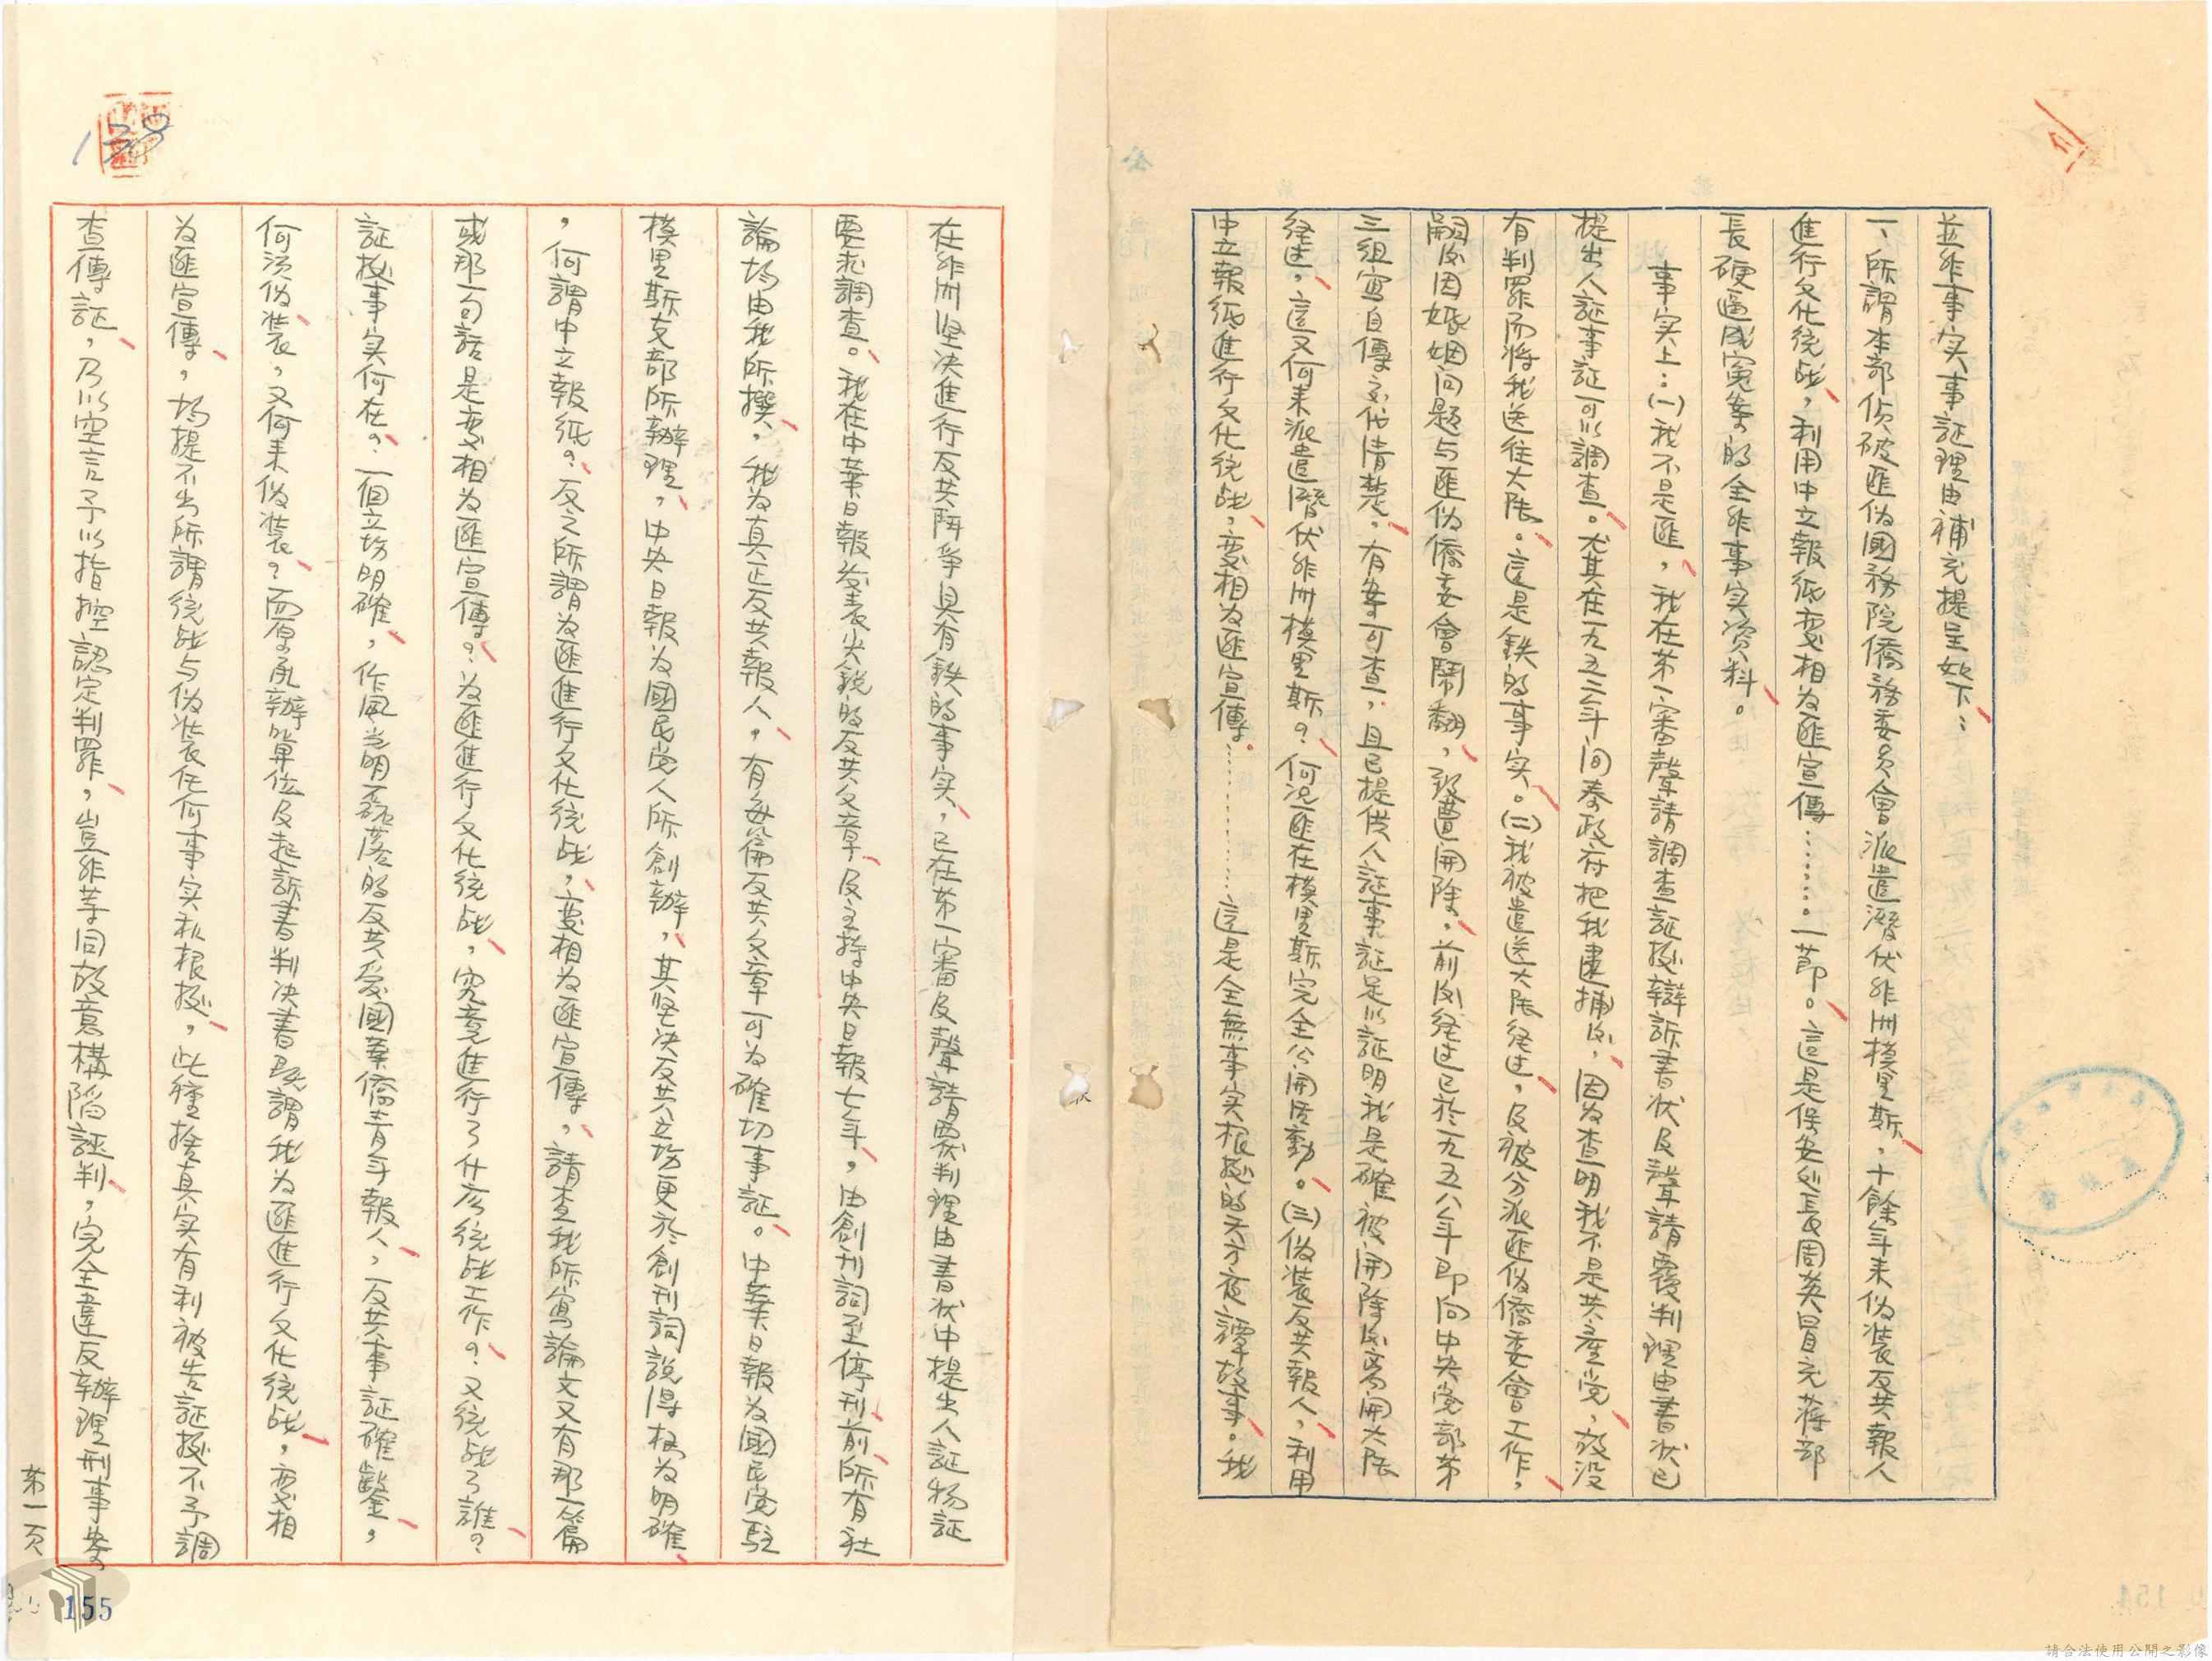 並非事实事証理由補充提呈如下：
一、所謂本部偵破匪偽國務院僑務委員會派遣潛伏非洲模里斯，十餘年来偽装反共報人
進行文化統战，利用中立報紙变相為匪宣傳………。一節。這是保安処長周英冒充蒋部
長硬逼成冤案的全非事实資料。
事实上：(一)我不是匪，我在第一審聲請調查証据辯訴書状及聲請覆判理由書状已
提出人証事証可以調查。尤其在一九五三年间泰政府把我逮捕後，因為查明我不是共產党，故没
有判罪而将我送往大陸。這是鉄的事实。(二)我被遣送大陸经过，及被分派匪偽僑委會工作，
嗣後因婚姻问題与匪偽僑委會鬧翻，致遭開除，前後经过已於一九五八年即向中央党部第
三組寫自傳交代清楚，有案可查，且已提供人証事証足以証明我是確被開除後离開大陸
经过，這又何来派遣潛伏非洲模里斯？何况匪在模里斯完全公開活動。(三)偽装反共報人，利用
中立報紙進行文化統战，变相為匪宣傳…………這是全無事实根据的天方夜譚故事。我
在非洲坚决進行反共鬥爭具有鉄的事实，已在第一審及聲請覆判理由書状中提出人証物証
要求調查。我在中華日報發表尖銳的反共文章及主持中央日報七年，由創刊詞至停刊前所有社
論均由我所撰，我為真正反共報人，有每篇反共文章可為確切事証。中華日報為國民党駐
模里斯支部所辦理，中央日報為國民党人所創辦，其坚决反共立场更於創刊詞說得極為明確
，何謂中立報紙？反之所謂為匪進行文化統战，变相為匪宣傳，請查我所寫論文又有那一篇
或那一句話是变相為匪宣傳？為匪進行文化統战，究竟進行了什麽統战工作？又統战了誰？
証据事实何在？一個立场明確，作風光明磊落的反共爱國華僑青年報人，反共事証確鑿，
何須偽装，又何来偽装？而原承辦單位及起訴書判决書既謂我為匪進行文化統战，变相
為匪宣傳，均提不出所謂統战与偽装任何事实和根据，此種捨真实有利被告証据不予調
查傳証，乃以空言予以指控認定判罪，豈非等同故意構陷誣判，完全違反辦理刑事案
第一页
138
155
154
請合法使用公開之影像